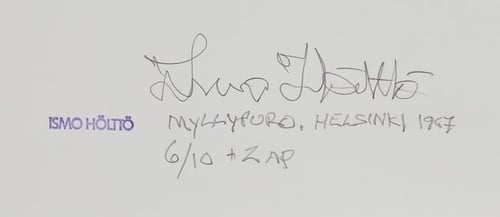 Ismo Hölttö
ISMO HÖLTTÖ MYLLYPURO, HELSINKI 1967
6/10 + 2 AP